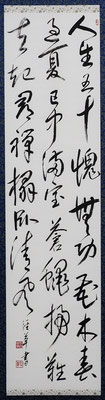 人生五十愧無功花木春
過夏已中満室蒼蠅掃難
去起尋禅榻臥清風